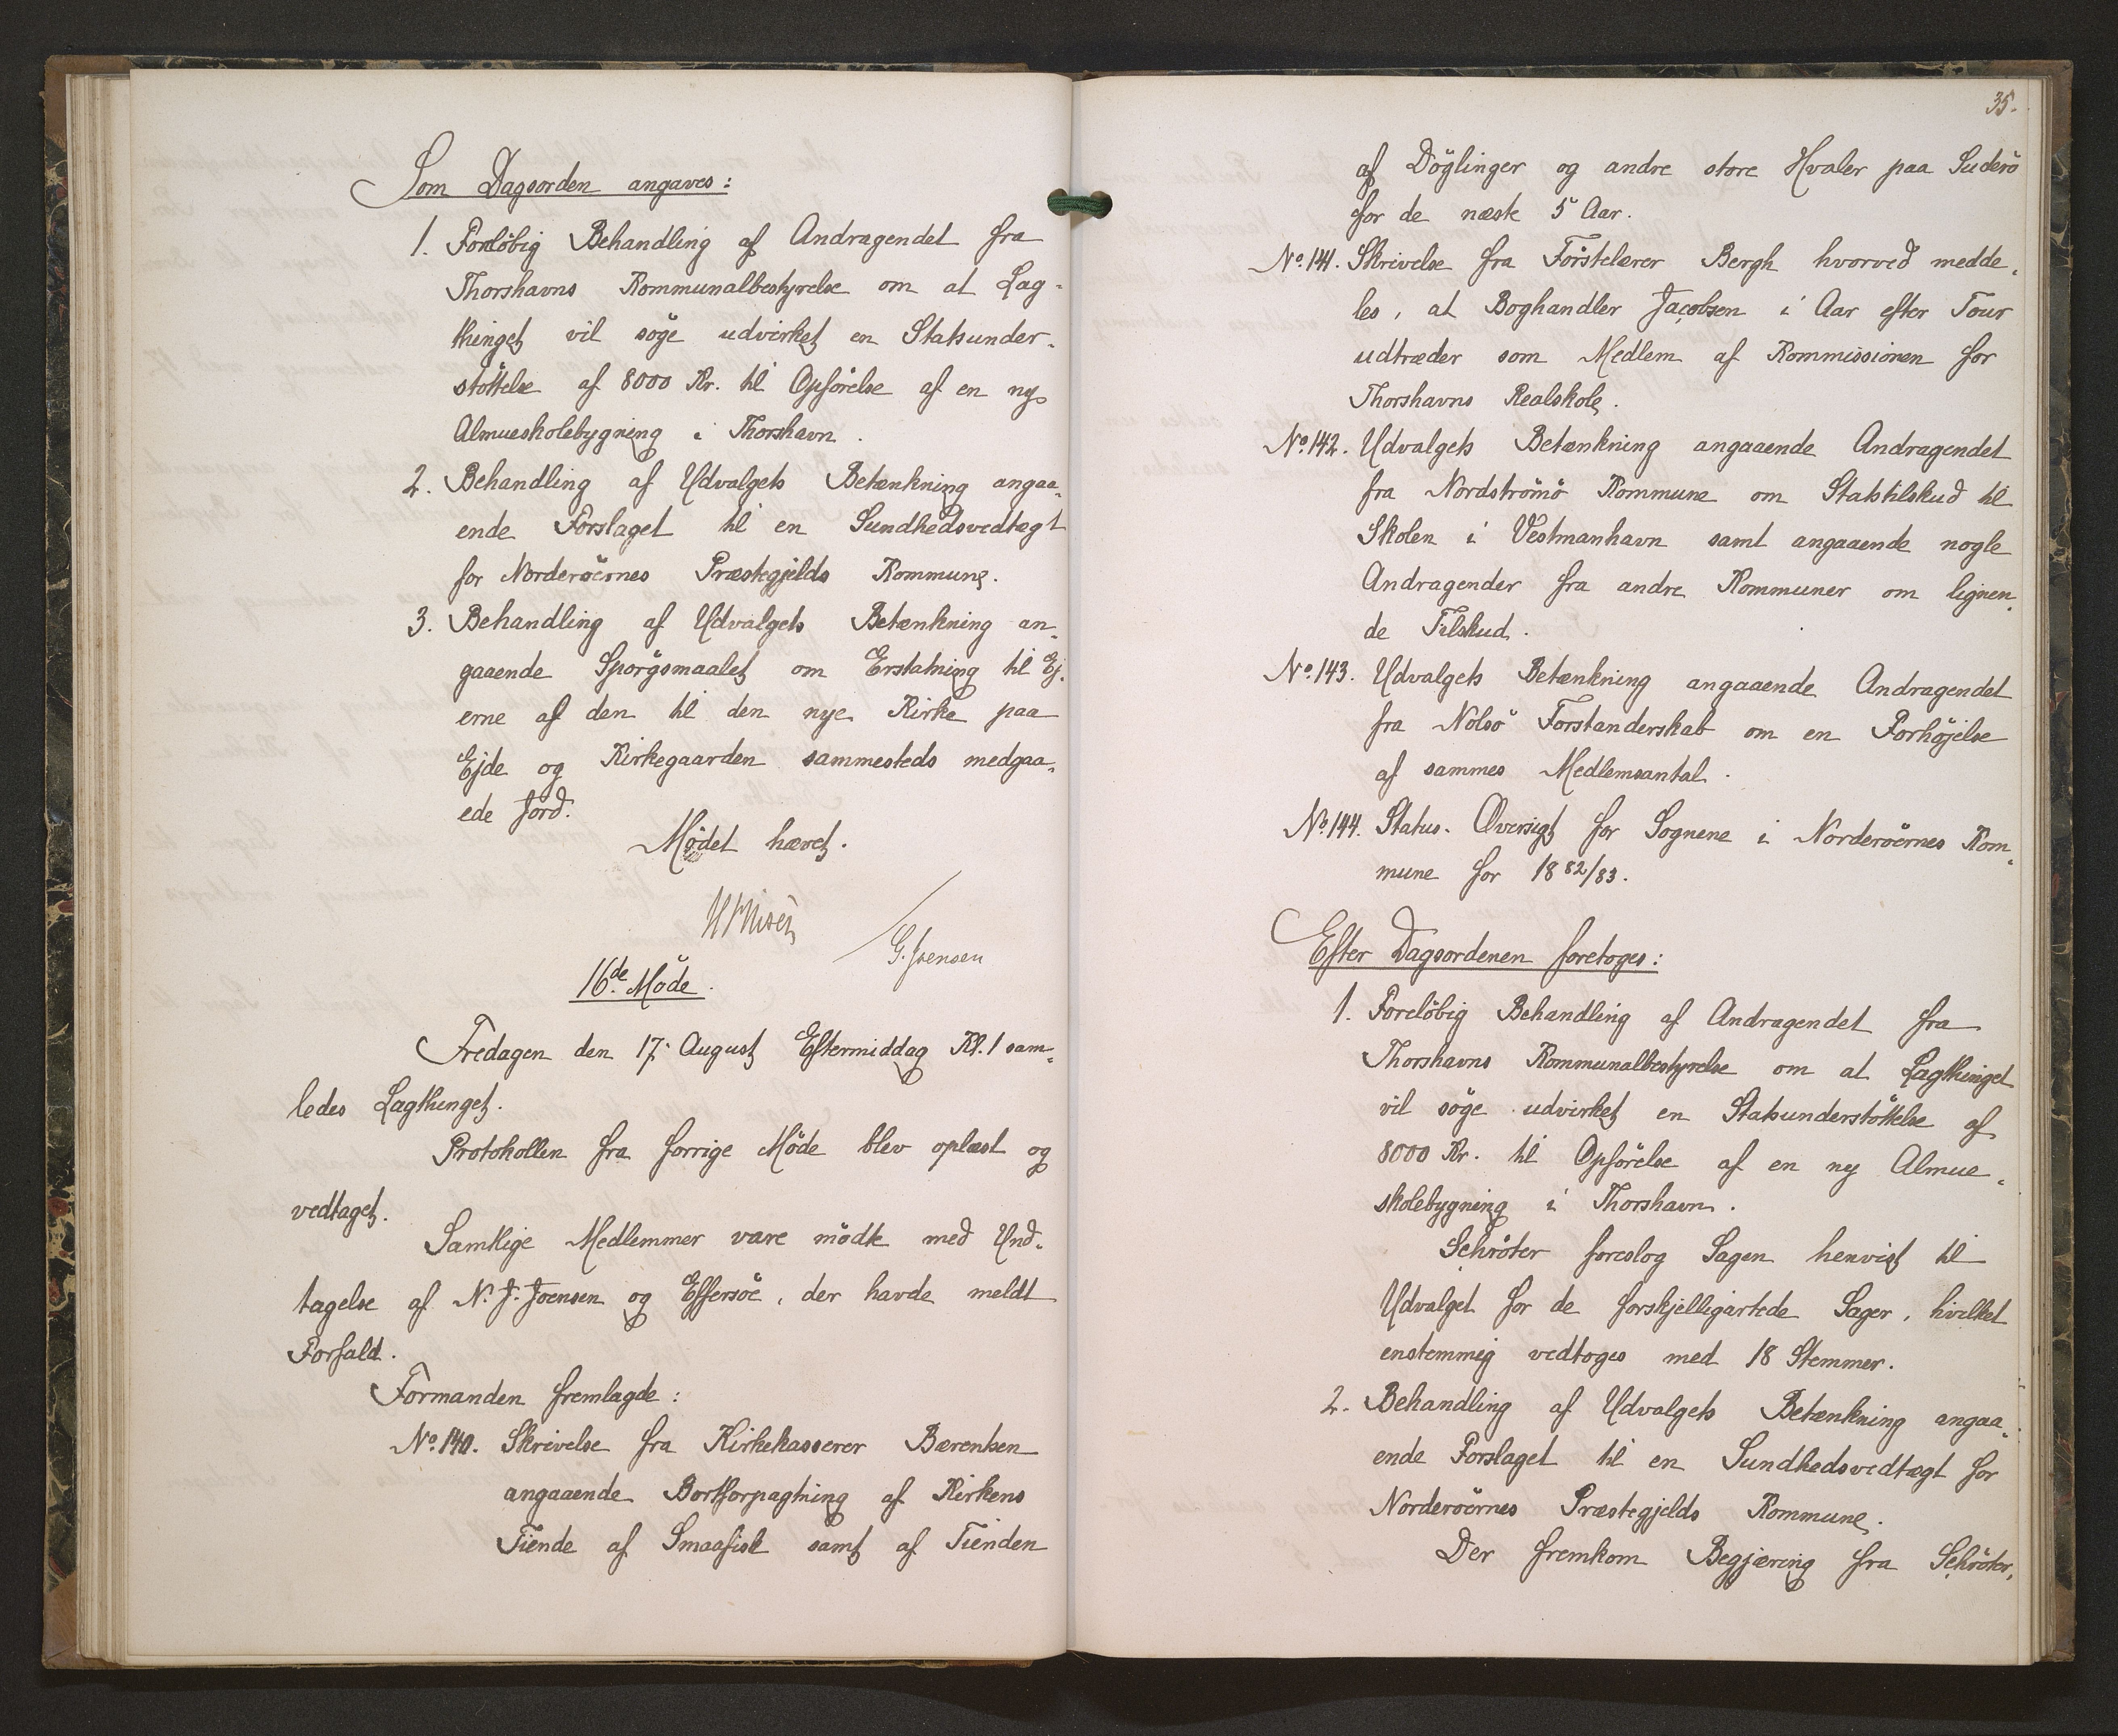 Som Dagsorden angaves:
1. Foreløbig Behandling af Andragendet fra
Thorshavns Kommunalbestyrelse om at Lag-
thinget vil söge udvirket en Statsunder-
støttelse af 8000 Kr. til Opförelse af en ny
Almueskolebygning i Thorshavn.
2. Behandling af Udvalgets Betænkning angaa-
ende Forslaget til en Sundhedsvedtægt
for Norderöernes Præstegjelds Kommune.
3. Behandling af Udvalgets Betænkning an-
gaaende Spörgsmaalet om Erstatning til Ej-
erne af den til den nye Kirke paa
Ejde og Kirkegaarden sammesteds medgaa-
ede Jord.
Mödet hævet.
G. Joensen
16de Möde.
Fredagen den 17. August Eftermiddag Kl. 1 sam-
ledes Lagthinget.
Protokollen fra forrige Möde blev oplæst og
vedtaget.
Samtlige Medlemmer vare mödte med Und-
tagelse af N. J. Joensen og Effersöe, der havde meldt
Forfald.
Formanden fremlagde:
No. 140. Skrivelse fra Kirkekasserer Bærentsen
angaaende Bortforpagtning af Kirkens
Tiende af Smaafisk samt af Tienden
35.
af Döglinger og andre store Hvaler paa Suderö
for de næste 5 Aar.
No. 141. Skrivelse fra Förstelærer Bergh hvorved medde-
les, at Boghandler Jacobsen i Aar efter Tour
udtræder som Medlem af Kommissionen for
Thorshavns Realskole.
No. 142. Udvalgets Betænkning angaaende Andragendet
fra Nordströmö Kommune om Statstilskud til
Skolen i Vestmanhavn samt angaaende nogle
Andragender fra andre Kommuner om lignen-
de Tilskud.
No. 143. Udvalgets Betænkning angaaende Andragendet
fra Nolsö Forstanderskab om en Forhöjelse
af sammes Medlemsantal.
No. 144. Status-Oversigt for Sognene i Norderöernes Kom-
mune for 1882/83.
Efter Dagsordenen foretoges:
1. Foreløbig Behandling af Andragendet fra
Thorshavns Kommunalbestyrelse om at Lagthinget
vil söge udvirket en Statsunderstöttelse af
8000 Kr. til Opförelse af en ny Almue-
skolebygning i Thorshavn.
Schröter foreslog Sagen henvist til
Udvalget for de forskjelligartede Sager, hvilket
enstemmig vedtoges med 18 Stemmer.
2. Behandling af Udvalgets Betænkning angaa-
ende Forslaget til en Sundhedsvedtægt for
Norderöernes Præstegjelds Kommune.
Der fremkom Begjæring fra Schröter,